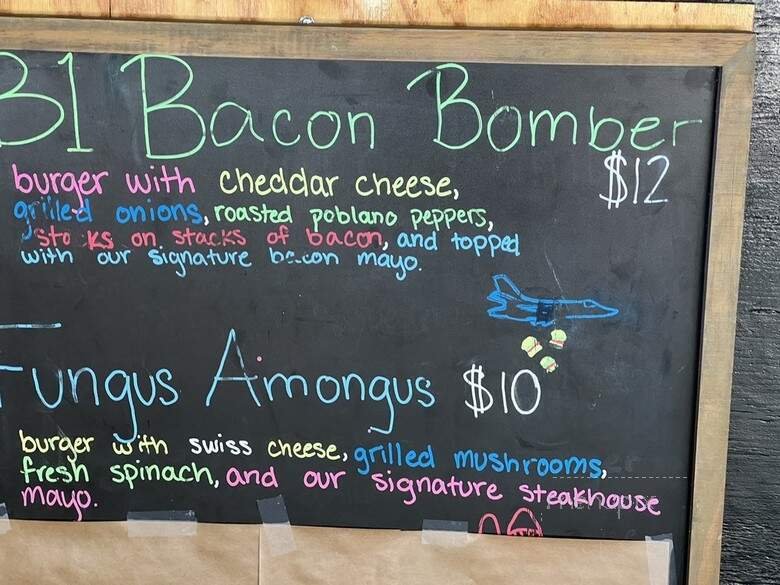 B1 Bacon Bomber
$12
burger with cheddar cheese,
grilled onions, roasted poblano peppers,
stacks on stacks of bacon, and topped
with our signature bacon mayo.
Fungus Amongus $10
burger with swiss cheese, grilled mushrooms,
fresh spinach, and our signature steakhouse
mayo.